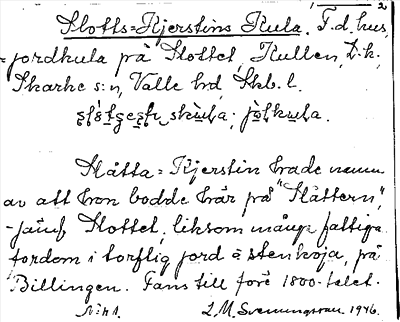 2
Slotts=Kjerstins Kula. F.d. hus,
=jordkula på Slottet, Kullen, D.k.,
Skarke s:n, Valle hd, Skb. l.
Slåtta=Kjerstin hade namn
av att hon bodde här på "Slåttern",
-jämf. Slottet, liksom många fattiga
fordom i torftig jord å stenkoja, på
Billingen. Fans till före 1800-talet.
L. M. Svenungsson. 1946.